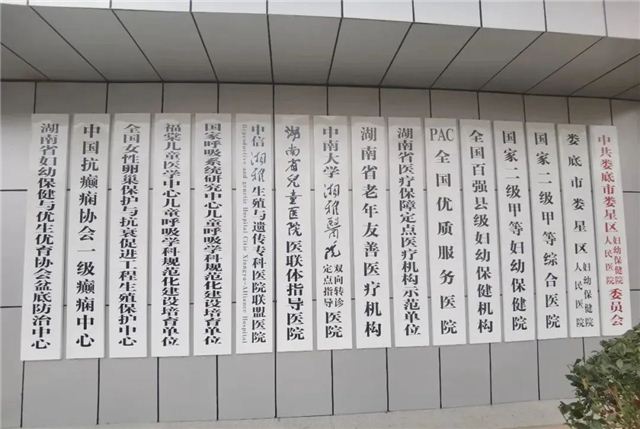 中共娄底市娄星区妇幼保健院人民医院委员会
娄底市娄星区妇幼保健院人民医院
国家二级甲等综合医院
国家二级甲等妇幼保健院
全国百强县级妇幼保健机构
PAC全国优质服务医院
湖南省医疗保障定点医疗机构示范单位
湖南省老年友善医疗机构
中南大学湘雅醫院双向转诊定点指导医院
湖南省儿童医院医联体指导医院
中信湘雅生殖与遗传专科医院联盟医院
Reproductive and genetic Hospital Citic Xiangya-Alliance Hospital
国家呼吸系统研究中心儿童呼吸学科规范化建设培育单位
福棠儿童医学中心儿童呼吸学科规范化建设培育单位
全国女性卵巢保护与抗衰促进工程生殖保护中心
中国抗癫痫协会一级癫痫中心
湖南省妇幼保健与优生优育协会盆底防治中心